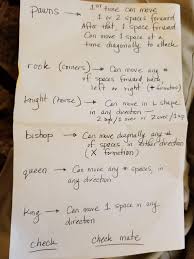 pawns → 1st time can move
1 or 2 spaces forward
After that 1 space forward
Can move 1 space at a
time diagonally to attack.
rook (corners) → Can move any #
of spaces forward back,
left or right (+ formation)
knight (horse) → Can move in L shape
in any direction →
2 up/1 over or 2 over/1 up
bishop → Can move diagonally any #
of spaces in either direction
(X formation)
queen → Can move any # spaces, in
any direction
King → Can move 1 space in any
direction
check check mate